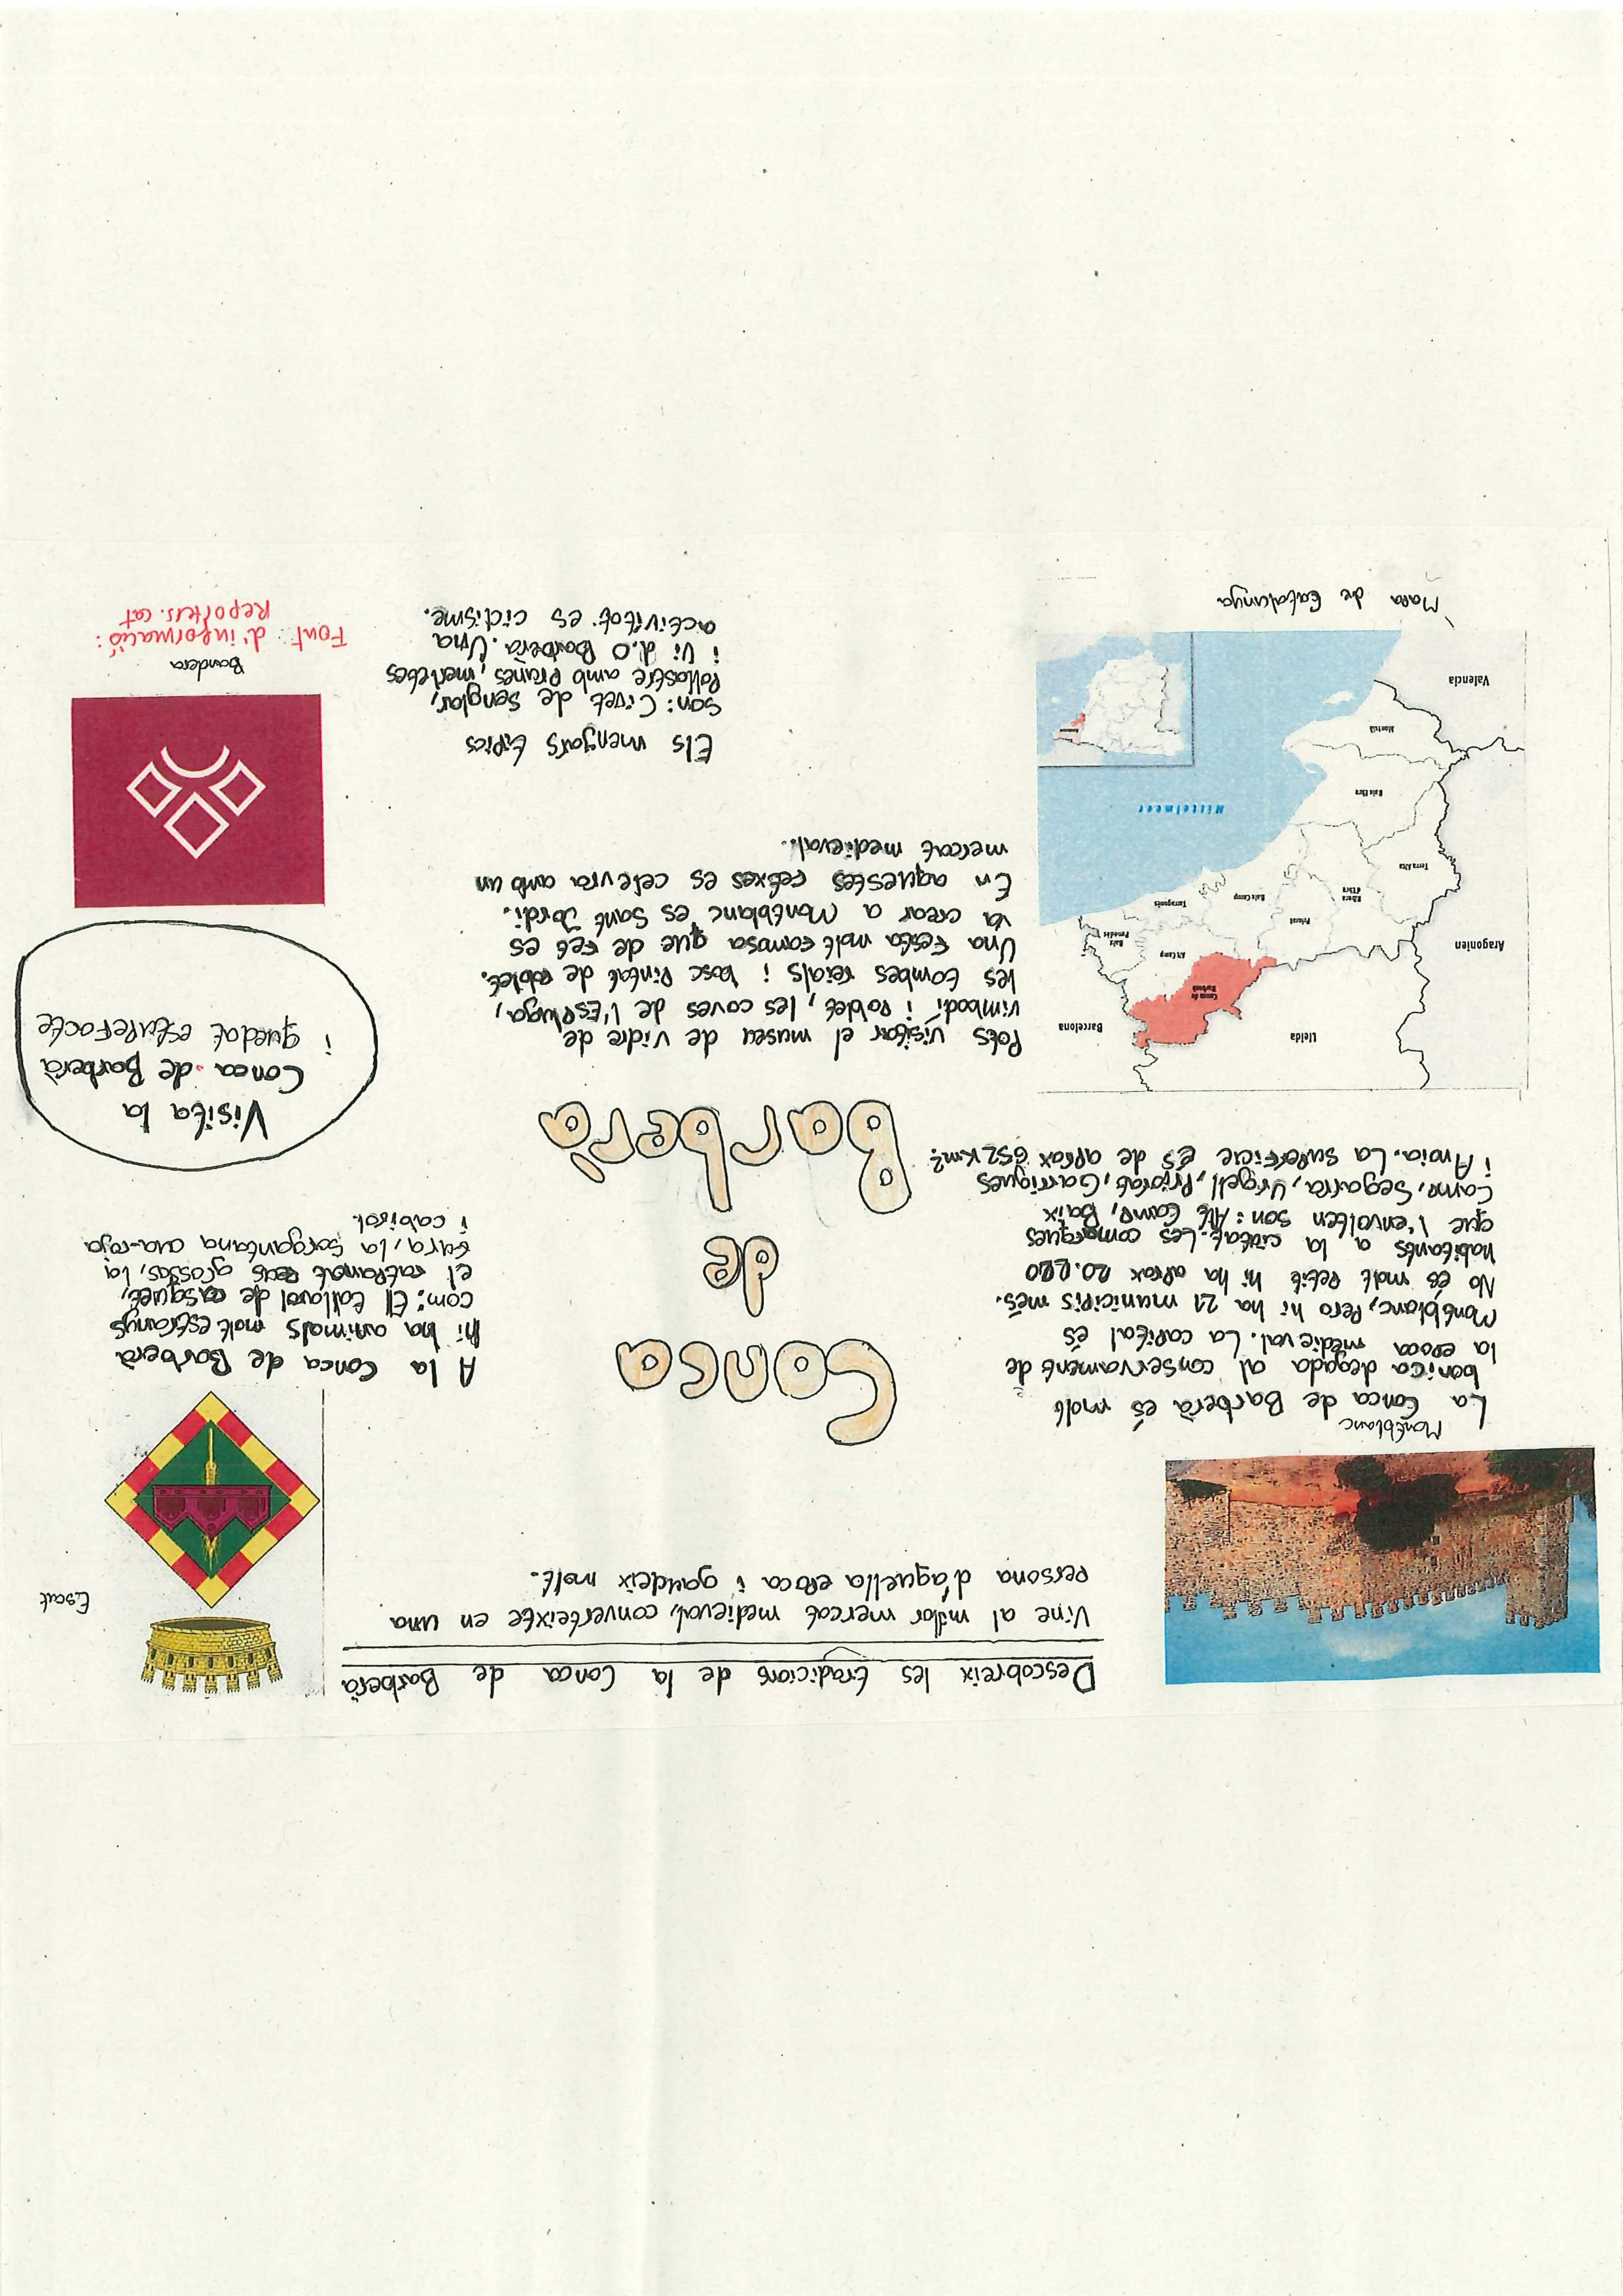 Descobreix les tradicions de la Conca de Barberà
Vine al millor mercat medieval, converteixte en una
persona d'aquella epoca i gaudeix molt.
Montblanc
La Conca de Barberà és molt
bonica degada al conservament de
la epoca medieval. La capital és
Montblanc, Pero hi ha 21 municipis més.
No és molt petit hi ha aprox 20.220
habitants a la ciutat. Les comarques
que l'envolten son: Alt Camp, Baix
Camp, Segarra, Urgell, Priorat, Garrigues
i Anoia. La superficie és de aprox 652 Km².
Lleida
Barcelona
Conca de
Barberà
Aragonien
Alt Camp
Baix
Penedès
Priorat
Ribera
d'Ebre
Baix Camp
Tarragonès
Terra Alta
Baix Ebre
Mittelmeer
Montsià
Valencia
Mapa de Catalunya
Conca
de
Barberà
Pots visitar el museu de vidre de
vimbodí i Poblet, les coves de l'Espluga,
les tombes reials i bosc pintat de Poblet.
Una festa molt famosa que de fet es
va crear a Montblanc es Sant Jordi.
En aquestes fetxes es celevra amb un
mercat medieval.
Els menjars típics
son: Civet de senglar,
Pollastre amb Prunes, merletes
i Vi d.O Barberà. Una
activitat es ciclisme.
Escut
A la Conca de Barberà
hi ha animals molt estranys
com: El tallarol de casquet,
el ratpenat peus grossos, la
tura, la sargantana cua-roja
i cabirol.
Visita la
Conca de Barberà
i quedat estupefacte
Bandera
Font d'informació:
Reporters.cat